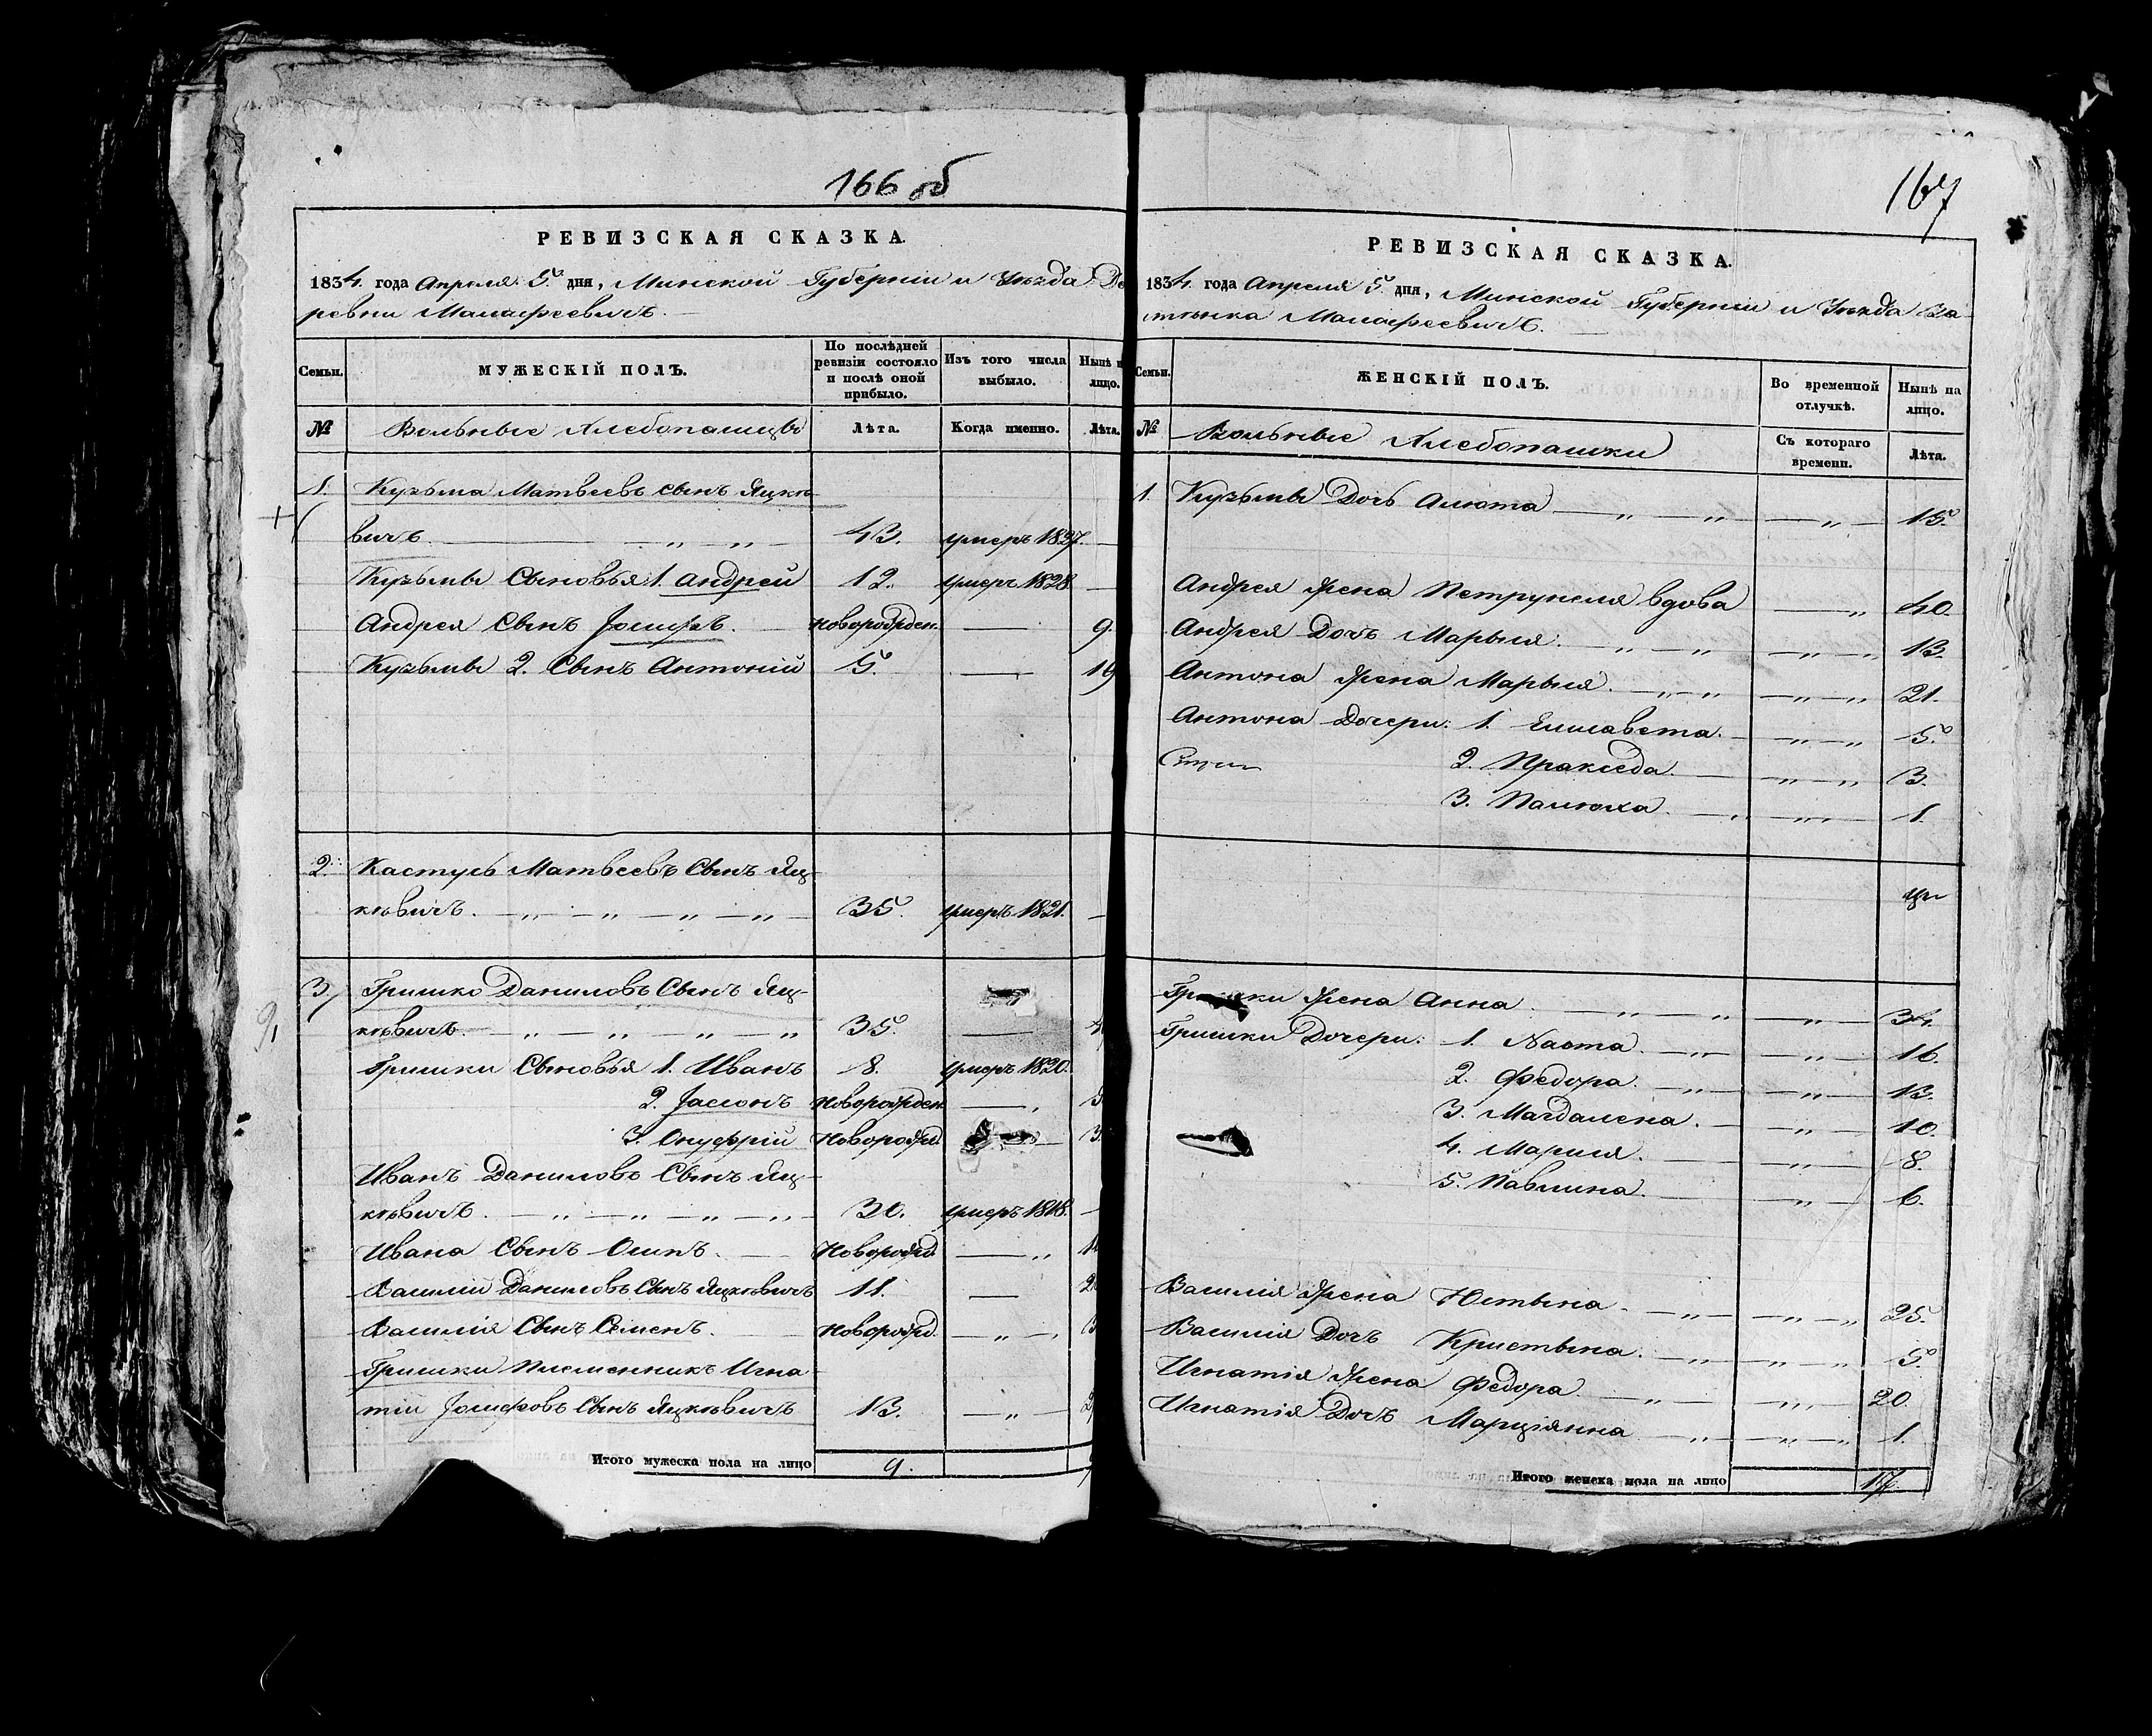 166 об
РЕВИЗСКАЯ СКАЗКА.
1834. года Апреля 5. дня, Минской Губерніи и Уѣзда Де
ревни Малафеевичъ.
Семьи.
МУЖЕСКІЙ ПОЛЪ.
По послѣдней ревизіи состояло и послѣ оной прибыло.
Изъ того числа выбыло.
Нынѣ н лицо.
№
Вольные Хлебопашцы
Лѣта.
Когда именно.
Лѣта.
1. Кузьма Матвеевъ сынъ Яцкѣ
вичъ 43. умеръ 1827.
Кузьмы Сыновья 1. Андрей 12. умеръ 1828
Андрея Сынъ Іосифъ. новорожден. 9.
Кузьмы 2. Сынъ Антоній 5. 19
2. Кастусь Матвеевъ Сынъ Яц-
кѣвичъ. 35. умеръ 1821.
3 Гришко Даниловъ Сынъ Яц-
кѣвичъ. 35.
Гришки Сыновья 1. Иванъ 8. умеръ 1820.
2. Іасіонъ новорожден
3. Онуфрій Новорожд. 3.
Иванъ Даниловъ Сынъ Яц-
кѣвичъ. 30. умеръ 1818.
Ивана Сынъ Осипъ. Новорожд
Василій Даниловъ Сынъ Яцкѣвичъ 11.
Василія Сынъ Семенъ. новорожд.
Гришки Племенникъ Игна
тій Іосифовъ Сынъ Яцкѣвичъ 13.
Итого мужеска пола на лицо 9.
167
РЕВИЗСКАЯ СКАЗКА.
1834. года Апреля 5. дня, Минской Губерніи и Уѣзда За
стѣнка Малафеевичъ.
Семьи.
ЖЕНСКІЙ ПОЛЪ.
Во временной отлучкѣ.
Нынѣ на лицо.
№
Вольные Хлебопашки
Съ котораго времени.
Лѣта.
1. Кузьмы Дочь Алюта 15.
Андрея Жена Петрунеля вдова 40.
Андрея Дочь Марыя. 13.
Антона Жена Марыя. 21.
Антона Дочери: 1. Елисавета. 5.
2. Пракседа. 3.
3. Палюха. 1.
Гришки Жена Анна. 34.
Гришки Дочери: 1. Наста. 16.
2. Федора. 13.
3. Магдалена. 10.
4. Марися. 8.
5. Павлина. 6.
Василія Жена Юстына. 25.
Василія Дочь Крыстына. 5.
Игнатія Жена Федора. 20
Игнатія Дочь Марціянна 1.
Итого женска пола на лицо 17.